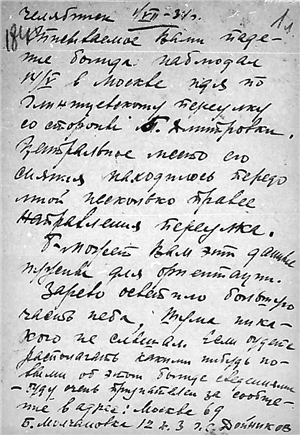 Челябинск 1/VI-31г.
Описываемое Вами паде-
ние болида наблюдал
14/V в Москве идя по
Глинищевскому переулку
со стороны Б. Дмитровки.
Центральное место его
сияния находилось передо
мной несколько правее
направления переулка.
Б. может Вам эти данные
нужны для ориентации.
Зарево осветило большую
часть неба. Шума ника-
кого не слышал. Если будете
располагать какими нибудь но-
выми об этом болиде сведениями
буду очень признателен за сообще-
ние в адрес: Москва 69
Б. Молчановка 12 к. 3